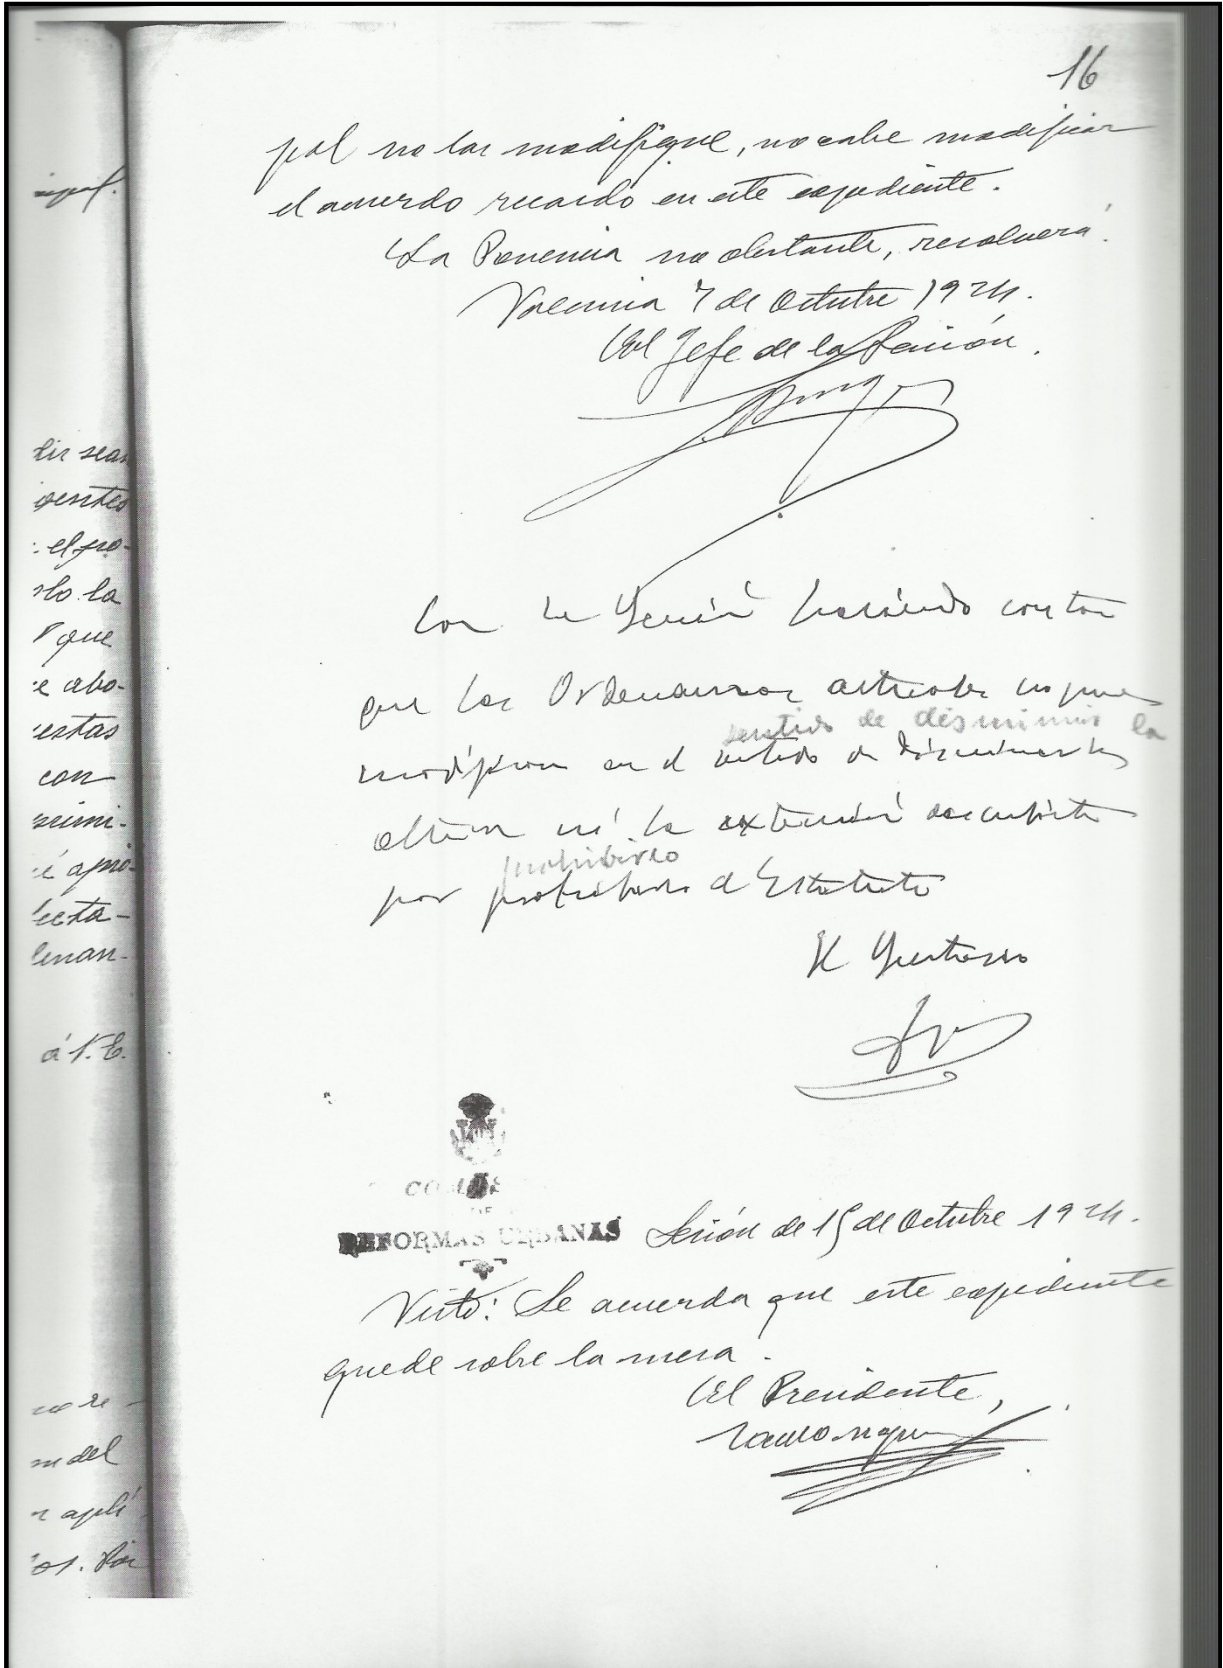 16
pal no las modifique, no cabe modificar
el acuerdo recaído en este expediente.
La Ponencia no obstante, resolverá.
Valencia 7 de Octubre 1924.
El Jefe de la Sección.
Con la Sección haciendo constar
que las Ordenanzas actuales no pueden
sentido de disminuir la
modificarse en el sentido de disminuir la
altura ni la extensión descubierta
prohibirlo
por prohibirlo el Estatuto
El
COMIS
DE
REFORMAS URBANAS
Sesión de 15 de Octubre 1924.
Visto: Se acuerda que este expediente
quede sobre la mesa.
El Presidente,
cipal.
dir sean
gentes
el pro-
do la
que
e abo-
estas
con
nimi-
é apro-
lecta-
denan-
á V.E.
no re-
del
apli
os. Por